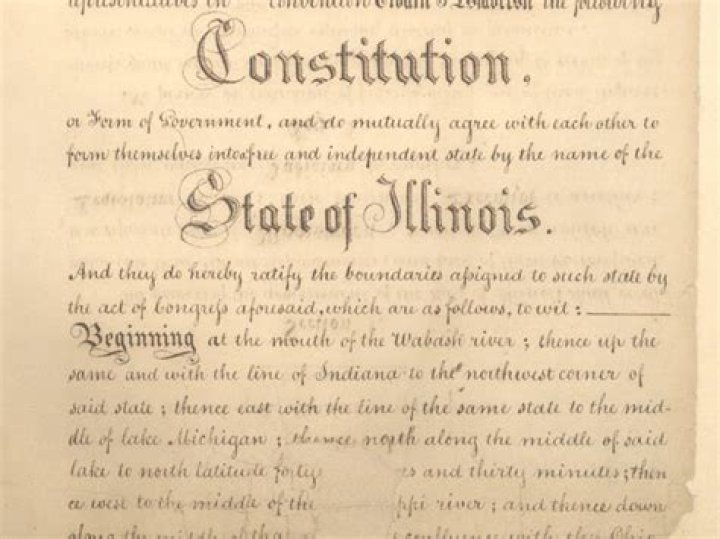 in Convention Ordain & Establish the following
Constitution,
or Form of Government, and do mutually agree with each other to
form themselves into a free and independent state by the name of the
State of Illinois.
And they do hereby ratify the boundaries assigned to such state by
the act of Congress aforesaid, which are as follows, to wit:
Beginning at the mouth of the Wabash river; thence up the
same and with the line of Indiana to the northwest corner of
said state; thence east with the line of the same state to the mid-
dle of lake Michigan; thence north along the middle of said
lake to north latitude forty es and thirty minutes; then
ce west to the middle of the ppi river; and thence down
along the middle of that confluence with the Ohio